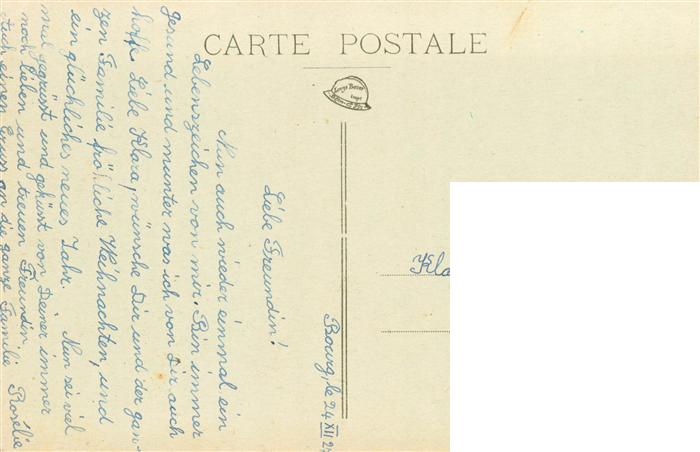 CARTE POSTALE
Bourg, le 24 XII 2
Liebe Freundin!
Nun auch wieder einmal ein
Lebenszeichen von mir. Bin immer
gesund und munter was ich von Dir auch
hoffe Liebe Klara, wünsche Dir und der gan-
zen Familie fröhliche Weihnachten, und
ein glückliches neues Jahr. Nun sei viel
mal gegrüsst und geküsst von Deiner immer
noch lieben und treuen Freundin, Rosélie
einen Gruss an die ganze Familie
Kla